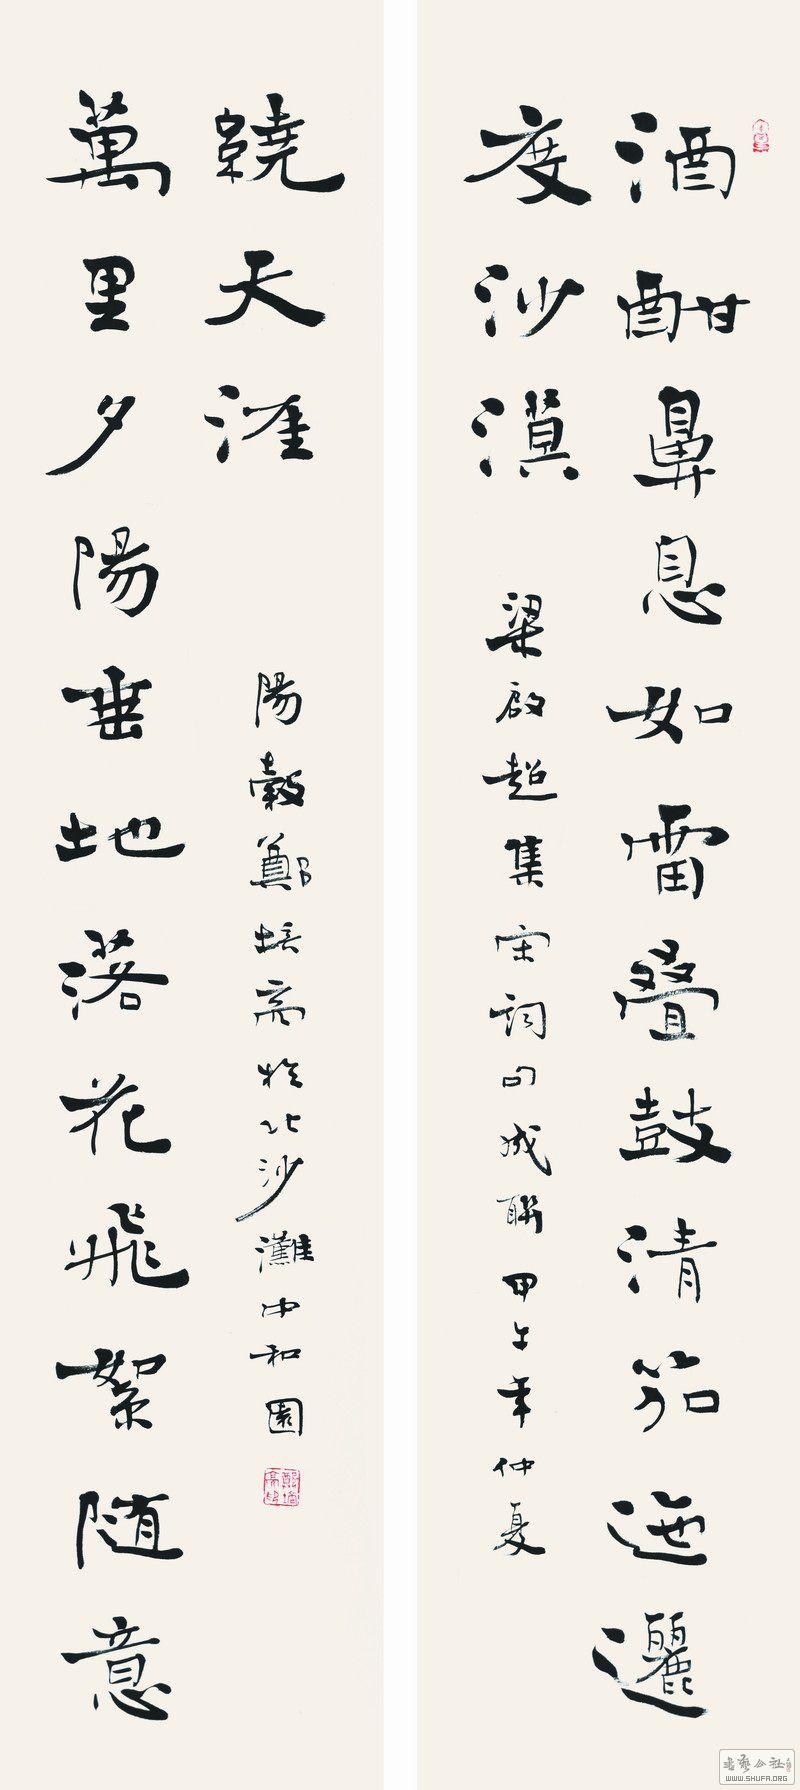 酒酣鼻息如雷叠鼓清笳迤邐
度沙漠
梁啟超集宋詞句成聯甲午年仲夏
萬里夕陽垂地落花飛絮随意
繞天涯
陽穀鄭培亮於北沙灘中和園
書藝公社
WWW.SHUFA.ORG